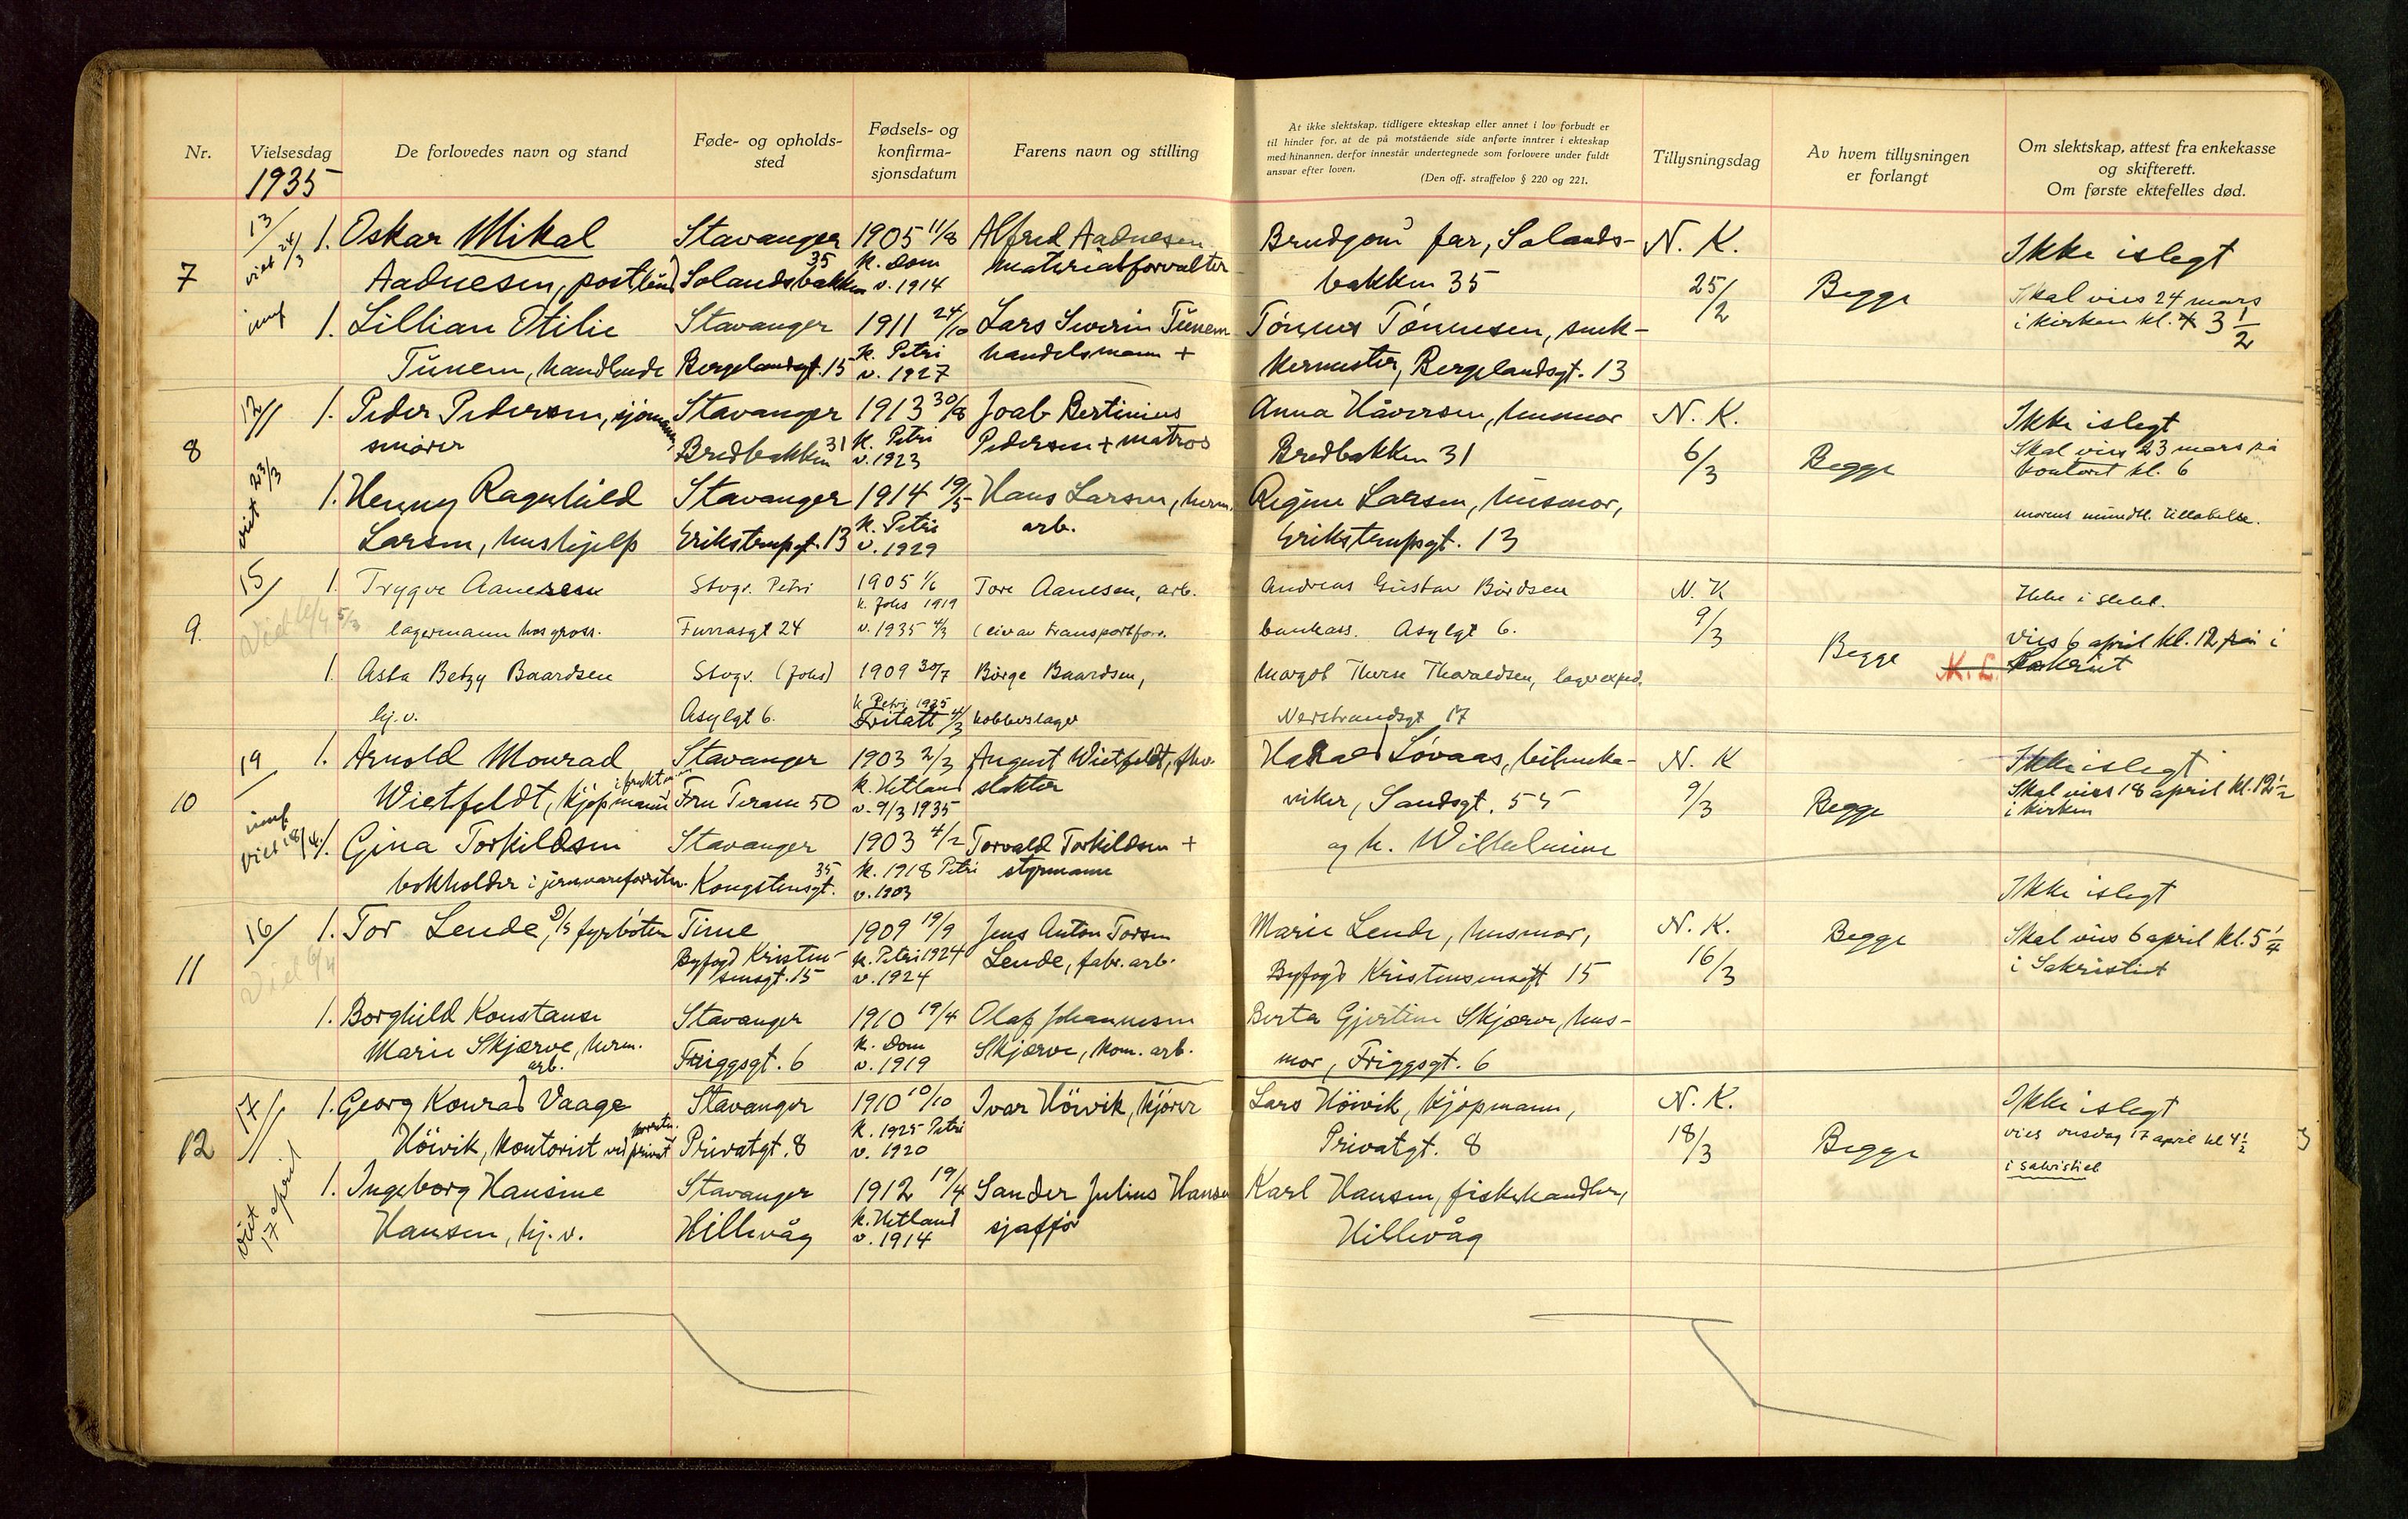 Nr.
Vielsesdag
1935
De forlovedes navn og stand
Føde- og opholds-
sted
Fødsels- og
konfirma-
sjonsdatum
Farens navn og stilling
At ikke slektskap, tidligere ekteskap eller annet i lov forbudt er
til hinder for, at de på motstående side anførte inntrer i ekteskap
med hinannen, derfor innestår undertegnede som forlovere under fuldt
ansvar efter loven.
(Den off. straffelov § 220 og 221.
Tillysningsdag
Av hvem tillysningen
er forlangt
Om slektskap, attest fra enkekasse
og skifterett.
Om første ektefelles død.
7
13/
viet 24/3
1. Oskar Mikal
Aadnesen, postbud
Stavanger
Solandsbakken 35
1905 11/8
k. Dom
v. 1914
Alfred Aadnesen
materialforvalter
Brudgom far, Solands-
bakken 35
N. K.
25/2
Begge
Ikke i slegt
Skal vies 24 mars
i kirken kl. 3 1/2
1. Lillian Otilie
Tunem, handlende
Stavanger
Bergelandsgt. 15
1911 24/10
k. Petri
v. 1927
Lars Severin Tunem
handelsmann +
Tönnes Tönnesen, snek-
kermester, Bergelandsgt. 13
8
12//
viet 23/3
1. Peder Pedersen, sjömann
smører
Stavanger
Bredbakken 31
1913 30/8
k. Petri
v. 1923
Joab Bertinius
Pedersen + matros
Anna Håversen, husmor
Bredbakken 31
N. K.
6/3
Begge
Ikke i slegt
Skal vies 23 mars på
kontoret kl. 6
morens mundtl. tillatelse.
1. Henny Ragnhild
Larsen, hushjelp
Stavanger
Erikstrupgt. 13
1914 19/5
k. Petri
v. 1929
Hans Larsen, herm.
arb.
Regine Larsen, husmor,
Erikstrupsgt. 13
9.
15/
Viet 6/4
1. Trygve Aanesen
lagermann hos gross.
Stvgr. Petri
Furrasgt 24
1905 1/6
k. Johs 1919
v. 1935 4/3
Tore Aanesen, arb.
Andreas Gustav Bårdsen
bankass. Asylgt 6.
N. K
9/3
Begge
Ikke i slekt.
Vies 6 april kl. 12 i
Sakristi
K. L.
1. Asta Betzy Baardsen
hj. v.
Stvgr. (Johs)
Asylgt 6.
1909 30/7
k Petri 1925
Fritatt 4/3
Börge Baardsen,
kobberslager
Margot Therese Thoraldsen, lagerexped.
Nerstrandsgt 17
10
19/
viet 18/4
1. Arnold Monrad
Wietfeldt, kjöpmann
Stavanger
Fru Terasse 50
1903 2/3
k. Hetland
v. 9/3 1935
August Wietfeldt, fhv.
slakter
Harald Lövaas, bilmeka-
niker, Sandsgt. 55
og h. Wilhelmine
N. K
9/3
Begge
Ikke i slegt
Skal vies 18 april kl. 12 1/2
i kirken
1. Gina Torkildsen
bokholder i jernvareforretn.
Stavanger
Kongstensgt. 35
1903 4/2
k. 1918 Petri
v. 1903
Torvald Torkildsen +
styrmann
11
16/
Viet 6/4
1. Tor Lende, D/S fyrböter
Time
Byfogd Kristen-
sensgt. 15
1909 19/9
k. Petri 1924
v. 1924
Jens Anton Torsen
Lende, fabr. arb.
Marie Lende, husmor,
Byfogd Kristensensgt 15
N. K.
16/3
Begge
Ikke i slegt
Skal vies 6 april kl. 5 1/4
i Sakristiet
1. Borghild Konstanse
Marie Skjærve, herm.
arb.
Stavanger
Friggsgt. 6
1910 19/4
k. Dom
v. 1919
Olaf Johannesen
Skjærve, kom. arb.
Berta Gjertine Skjærve, hus-
mor, Friggsgt. 6
12
17//
viet 17 april
1. Georg Konrad Vaage
Höivik, kontorist ved privat forretn.
Stavanger
Privatgt. 8
1910 10/10
k. 1925 Petri
v. 1920
Ivar Höivik, kjörer
Lars Höivik, kjöpmann,
Privatgt. 8
N. K.
18/3
Begge
Ikke i slegt
vies onsdag 17 april kl 4 1/2
i sakristiet
1. Ingeborg Hansine
Hansen, hj. v.
Stavanger
Hillevåg
1912 19/4
k. Hetland
v. 1914
Sander Julius Hansen
sjafför
Karl Hansen, fiskehandler,
Hillevåg